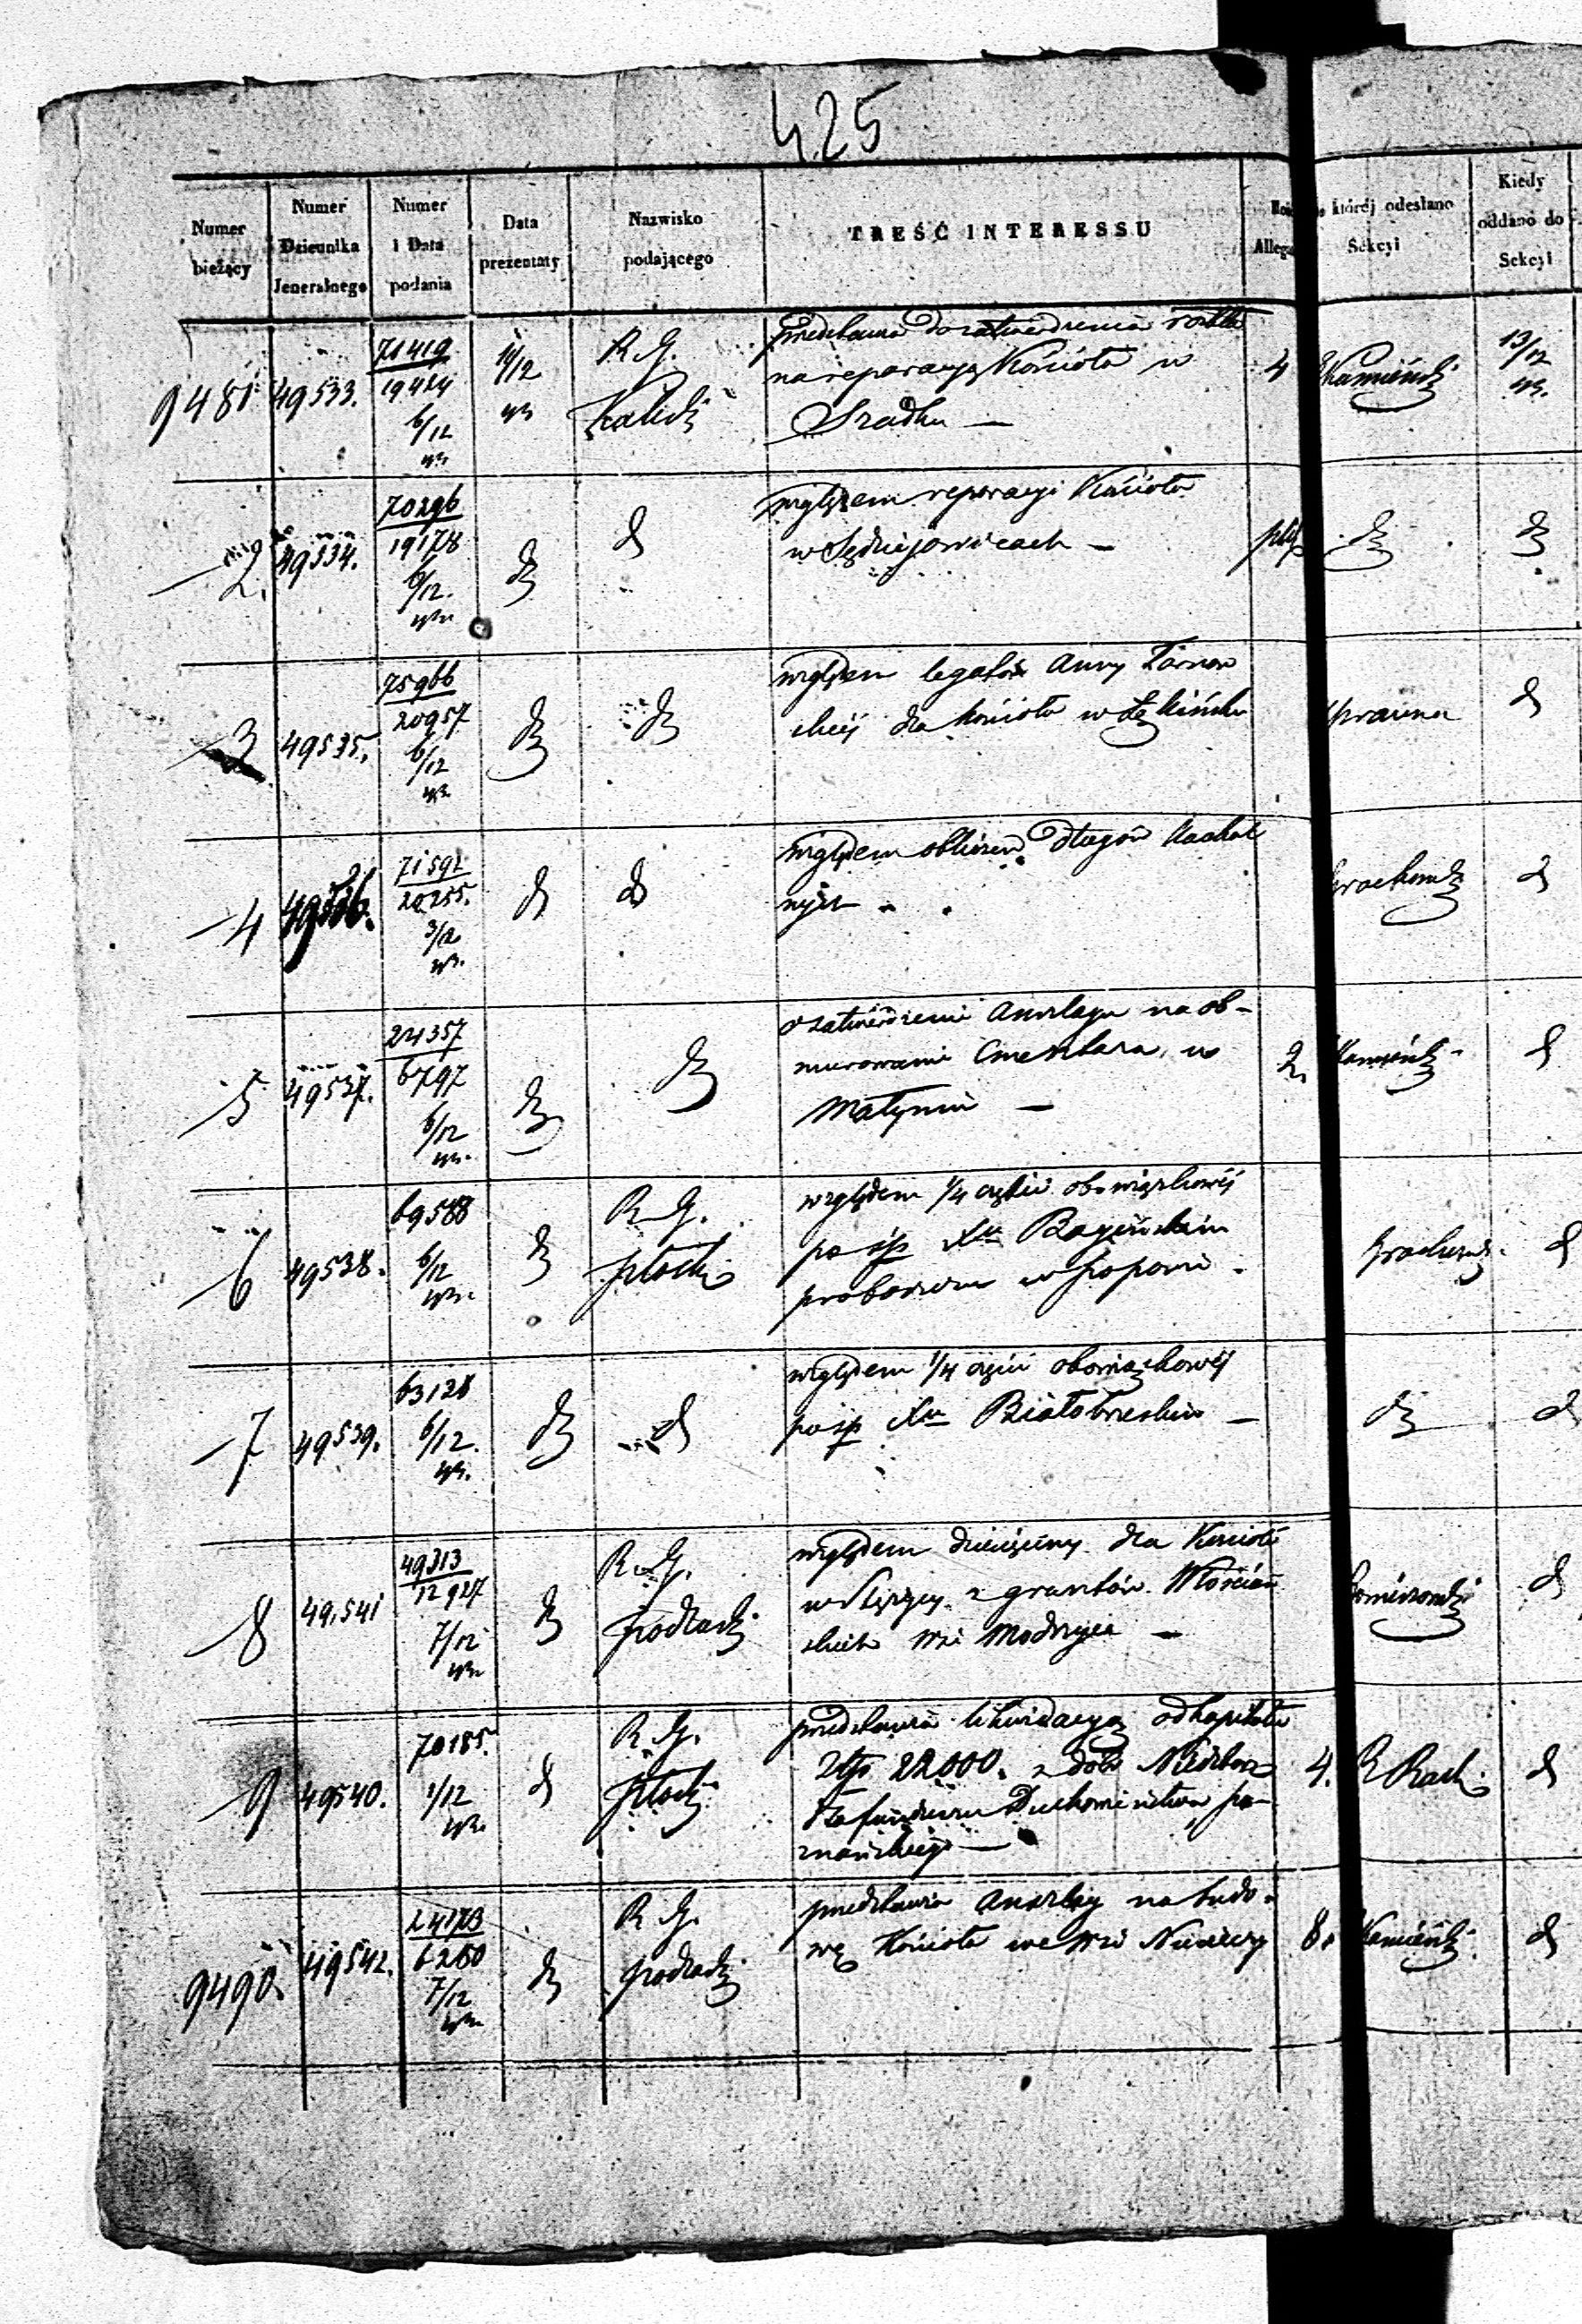 425
Numer bieżący
Numer Dziennika Jeneralnego
Numer i Data podania
Data prezentaty
Nazwisko podającego
TREŚĆ INTERESSU
Allega
której odesłano Sekcyi
Kiedy oddano do Sekcyi
9481 49533. 71419 19424 6/12 11/12 R. G. Kaliski
przedstawia do zatwierdzenia
na reparacyą Kościoła w
Szadku —
4 Kamiński 13/12
2. 49534. 70296 19178 6/12. d
względem reparacyi Kościoła
w Sędziejowicach —
d d
3 49535. 75966 20957 6/12 d d
względem legatów Anny Tarnow
skiej dla Kościoła w Łękińsku
Prawna d
4 71592 20255. d d
względem długów
nych
d
5 49537. 24357 6797 6/12 d d
o zatwierdzenie Anszlagu na ob-
murowanie Cmentarza w
Małyniu —
2 Kamiński d
6 49538. 69588 6/12 d R. G. Płocki
względem 1/4 części obowiązkowej
po śp Xu
proboszczu w
d
7 49539. 63128 6/12. d d
względem 1/4 części obowiązkowej
po śp Xu Białobrzeskim —
d d
8 49,541 49313 12927 7/12 d R. G. Podlaski
względem dziesięciny dla Kościoła
z gruntów Włościań
skich wsi Modrzyce —
d
9 49540. 70185. 1/12 d R. G. Płocki
przedstawia likwidacyą od kapitału
Złp 22000. z dóbr
Duchowieństwa Po-
znańskiego —
4. d
9490. 49542. 24173 6260 7/12 d R. G. Podlaski
przedstawia Anszlag na budo-
wę Kościoła we wsi
8. Kamiński d